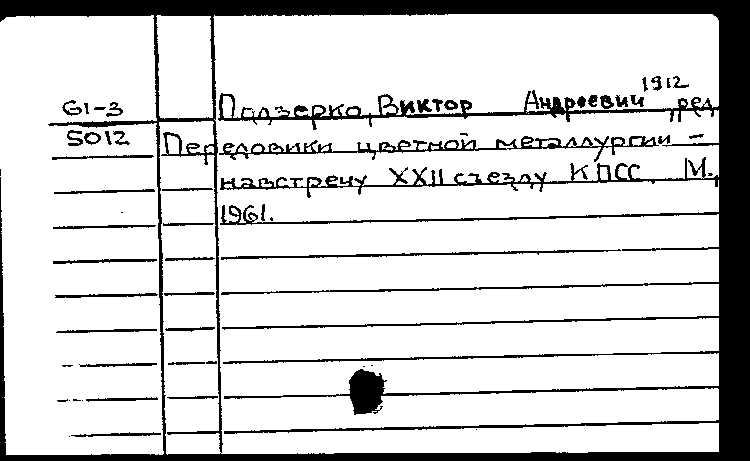 1912
61-3 Подзерко, Виктор Андреевич, ред.
5012 Передовики цветной металлургии –
навстречу XXII съезду КПСС. М.,
1961.